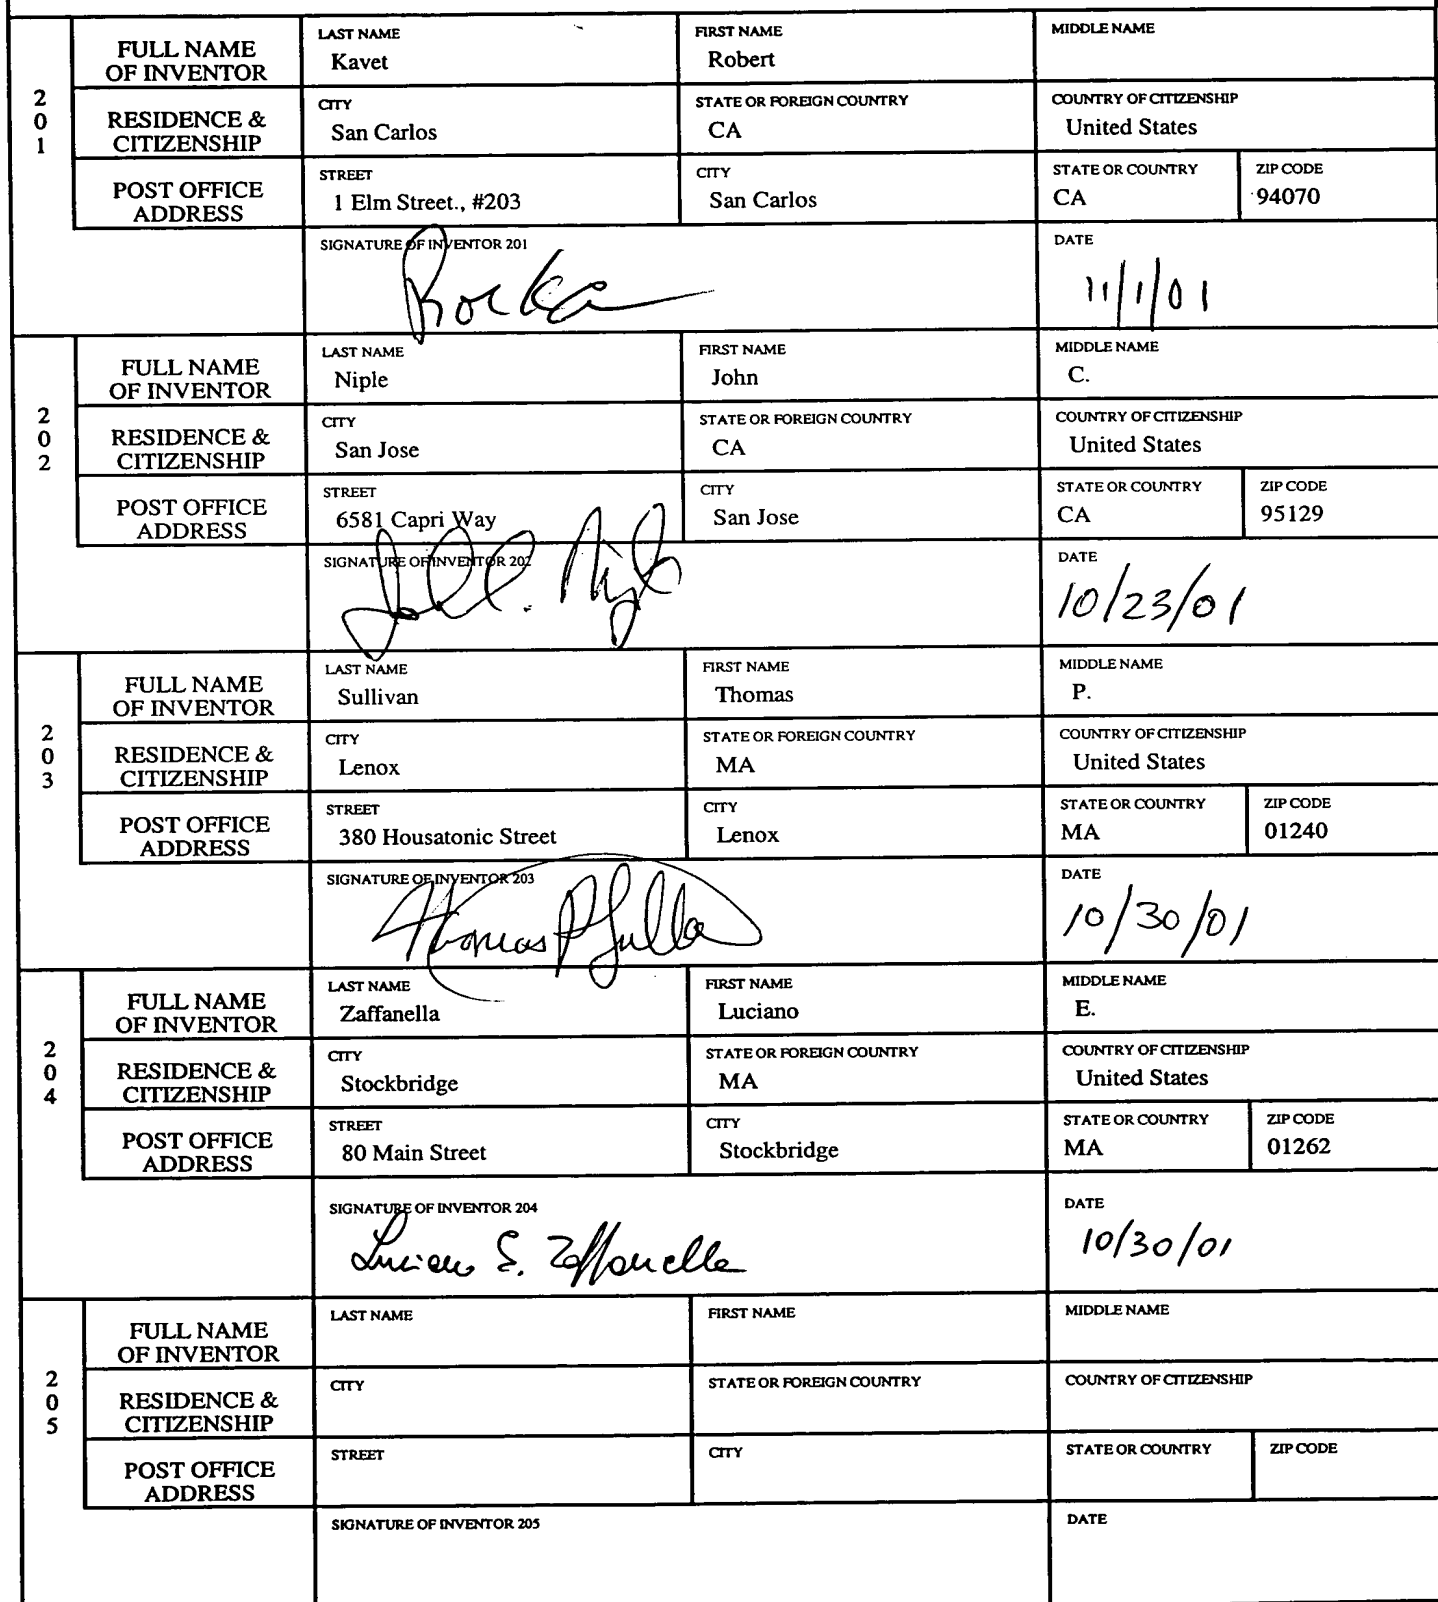 201
FULL NAME OF INVENTOR
LAST NAME
Kavet
FIRST NAME
Robert
MIDDLE NAME
RESIDENCE & CITIZENSHIP
CITY
San Carlos
STATE OR FOREIGN COUNTRY
CA
COUNTRY OF CITIZENSHIP
United States
POST OFFICE ADDRESS
STREET
1 Elm Street., #203
CITY
San Carlos
STATE OR COUNTRY
CA
ZIP CODE
94070
SIGNATURE OF INVENTOR 201
DATE
11/1/01
202
FULL NAME OF INVENTOR
LAST NAME
Niple
FIRST NAME
John
MIDDLE NAME
C.
RESIDENCE & CITIZENSHIP
CITY
San Jose
STATE OR FOREIGN COUNTRY
CA
COUNTRY OF CITIZENSHIP
United States
POST OFFICE ADDRESS
STREET
6581 Capri Way
CITY
San Jose
STATE OR COUNTRY
CA
ZIP CODE
95129
SIGNATURE OF INVENTOR 202
DATE
10/23/01
203
FULL NAME OF INVENTOR
LAST NAME
Sullivan
FIRST NAME
Thomas
MIDDLE NAME
P.
RESIDENCE & CITIZENSHIP
CITY
Lenox
STATE OR FOREIGN COUNTRY
MA
COUNTRY OF CITIZENSHIP
United States
POST OFFICE ADDRESS
STREET
380 Housatonic Street
CITY
Lenox
STATE OR COUNTRY
MA
ZIP CODE
01240
SIGNATURE OF INVENTOR 203
Thomas P
DATE
10/30/01
204
FULL NAME OF INVENTOR
LAST NAME
Zaffanella
FIRST NAME
Luciano
MIDDLE NAME
E.
RESIDENCE & CITIZENSHIP
CITY
Stockbridge
STATE OR FOREIGN COUNTRY
MA
COUNTRY OF CITIZENSHIP
United States
POST OFFICE ADDRESS
STREET
80 Main Street
CITY
Stockbridge
STATE OR COUNTRY
MA
ZIP CODE
01262
SIGNATURE OF INVENTOR 204
Luciano E. Zaffanella
DATE
10/30/01
205
FULL NAME OF INVENTOR
LAST NAME
FIRST NAME
MIDDLE NAME
RESIDENCE & CITIZENSHIP
CITY
STATE OR FOREIGN COUNTRY
COUNTRY OF CITIZENSHIP
POST OFFICE ADDRESS
STREET
CITY
STATE OR COUNTRY
ZIP CODE
SIGNATURE OF INVENTOR 205
DATE